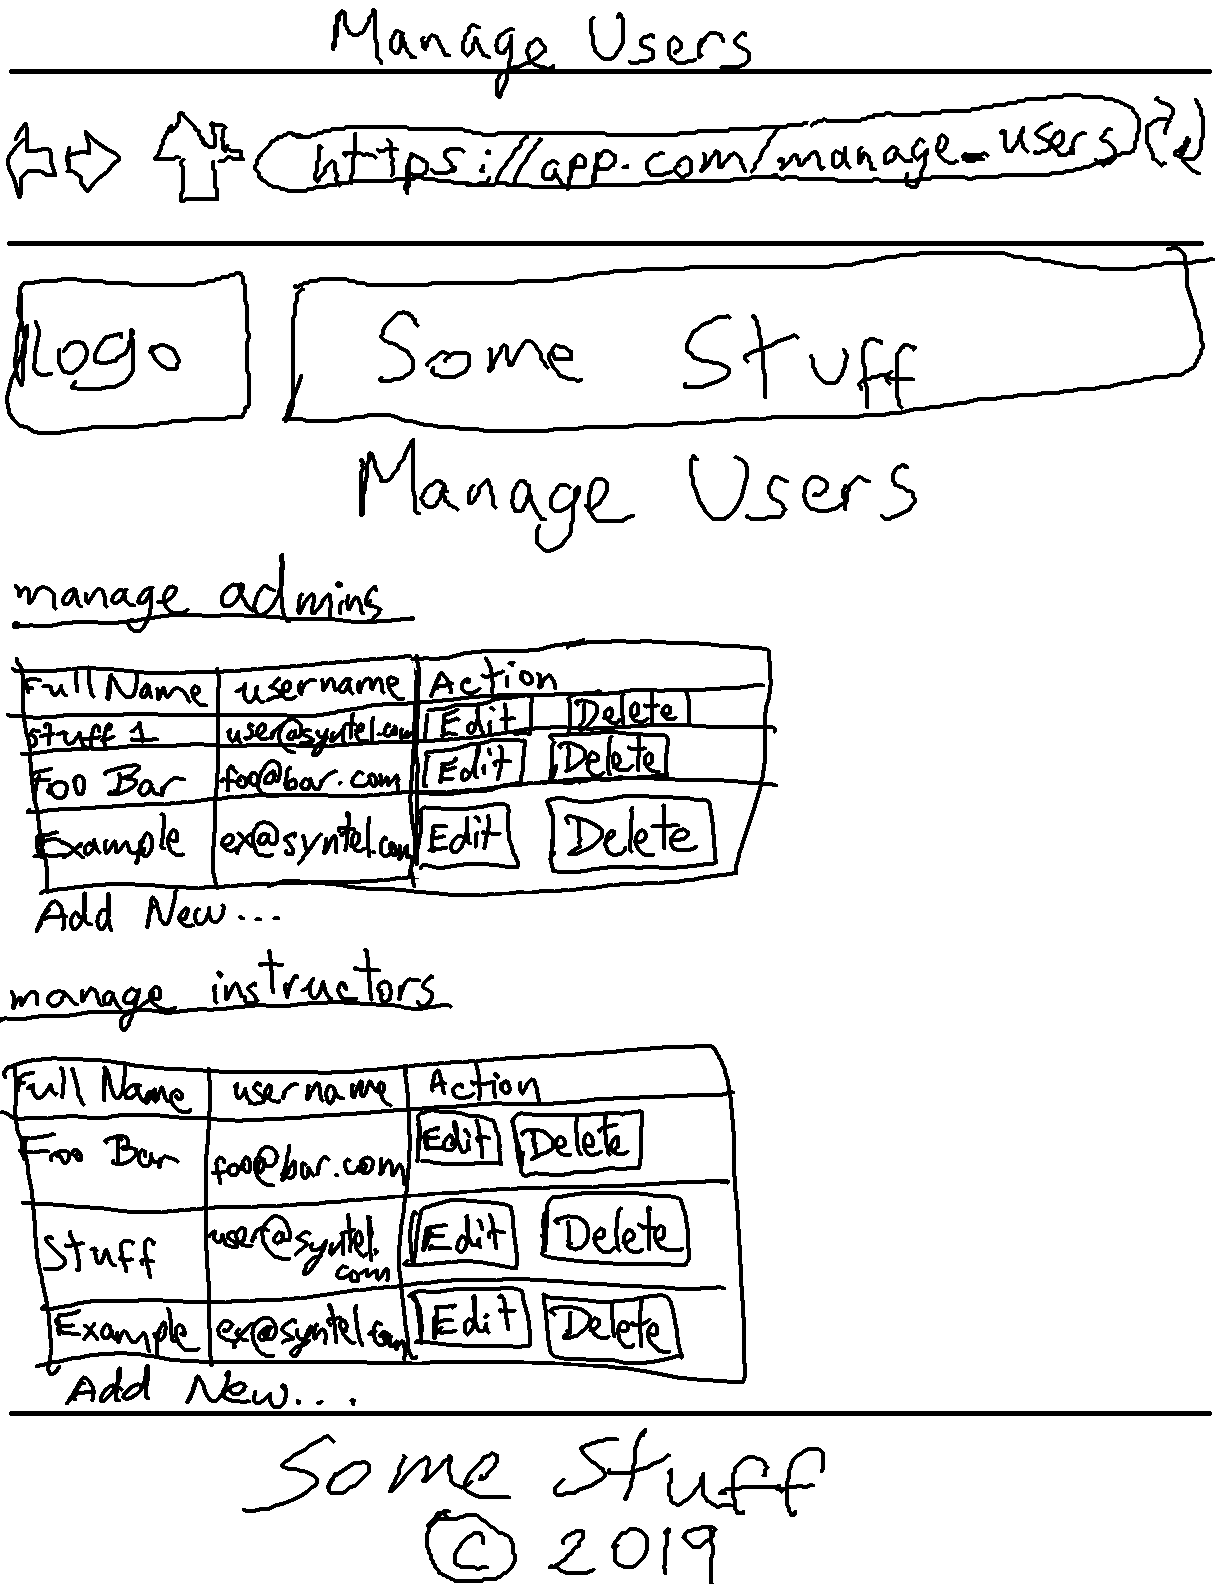 Manage Users
https://app.com/manage_users
Logo
Some Stuff
Manage Users
manage admins
Full Name username Action
Stuff 1 user@syntel.com Edit Delete
Foo Bar foo@bar.com Edit Delete
Example ex@syntel.com Edit Delete
Add New...
manage instructors
Full Name username Action
Foo Bar foo@bar.com Edit Delete
Stuff user@syntel.
com Edit Delete
Example ex@syntel.com Edit Delete
Add New...
Some Stuff
© 2019